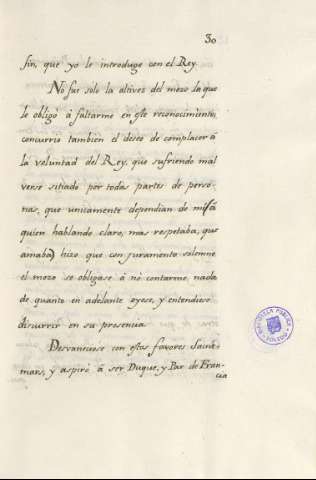 30
fin, que yo le introduge con el Rey.
No fue solo la altivez del mozo la que
le obligó á faltarme en este reconocimiento,
concurrio tambien el deseo de complacer á
la voluntad del Rey, que sufriendo mal
verse sitiado por todas partes de perso-
nas, que unicamente dependian de mi (á
quien hablando claro, mas respetaba, que
amaba) hizo que con juramento solemne
el mozo se obligase á nó contarme nada
de quanto en adelante oyese, y entendiese
discurrir en su presencia.
Desvaneciose con estos favores Saint-
mars, y aspiró á ser Duque, y Par de Fran-
cia
BIBLIOTECA PUBLICA
TOLEDO